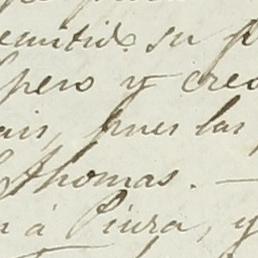 remitido su
pero y creo
pues las
Thomas. —
á Piura, y